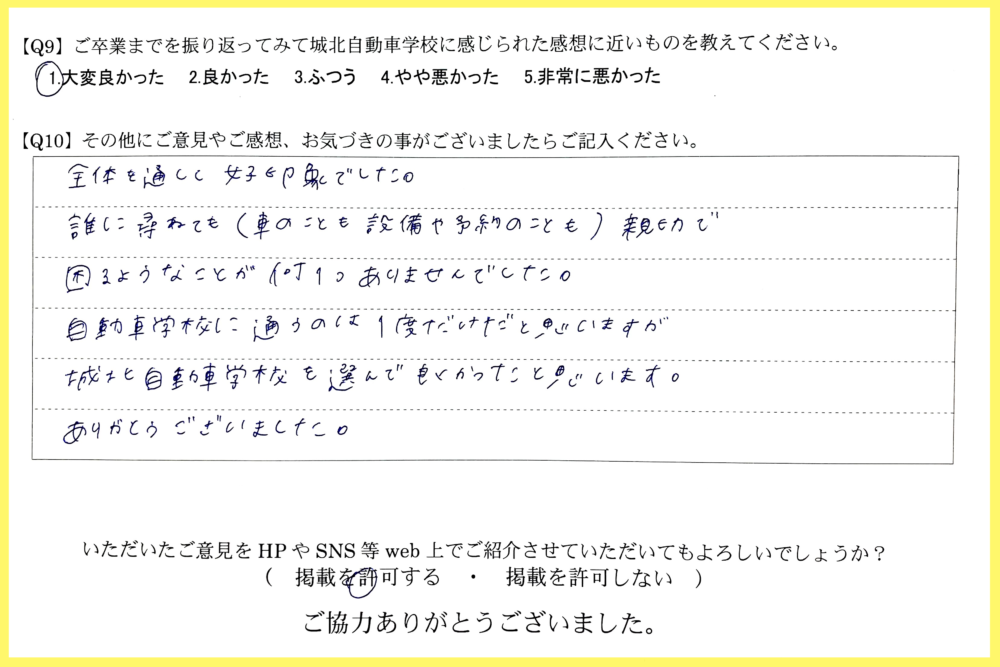 【Q9】ご卒業までを振り返ってみて城北自動車学校に感じられた感想に近いものを教えてください。
1.大変良かった 2.良かった 3.ふつう 4.やや悪かった 5.非常に悪かった
【Q10】その他にご意見やご感想、お気づきの事がございましたらご記入ください。
全体を通して好印象でした。
誰に尋ねても(車のことも設備や予約のことも)親切で
困るようなことが何1つありませんでした。
自動車学校に通うのは1度だけだと思いますが
城北自動車学校を選んで良かったと思います。
ありがとうございました。
いただいたご意見をHPやSNS等web上でご紹介させていただいてもよろしいでしょうか？
( 掲載を許可する ・ 掲載を許可しない )
ご協力ありがとうございました。